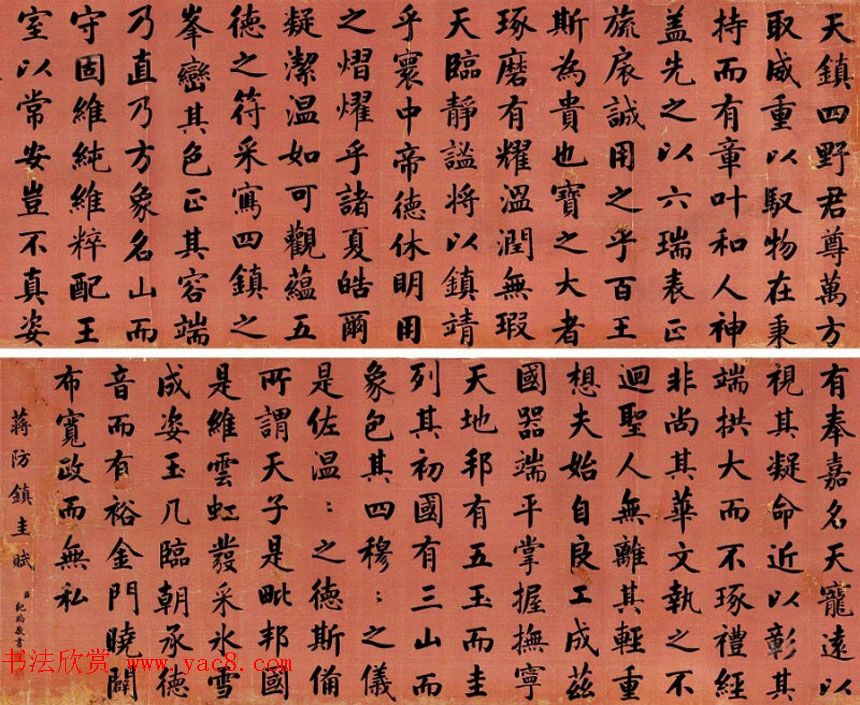 天鎮四野君尊萬方
取咸重以馭物在秉
持而有章叶和人神
盖先之以六瑞表正
旒扆誠用之乎百王
斯為貴也寶之大者
琢磨有耀溫潤無瑕
天臨靜謐將以鎮靖
乎寰中帝德休明用
之熠燿乎諸夏皓爾
凝潔溫如可觀蘊五
德之符采寫四鎮之
峯巒其色正其容端
乃直乃方象名山而
守固維純維粹配王
室以常安豈不真姿
有奉嘉名天寵遠以
視其凝命近以彰其
端拱大而不琢禮經
非尚其華文執之不
迴聖人無離其輕重
想夫始自良工成茲
國器端平掌握撫寧
天地邦有五玉而圭
列其初國有三山而
象包其四穆：之儀
是佐溫：之德斯備
所謂天子是毗邦國
是維雲虹發采冰雪
成姿玉几臨朝承德
音而有裕金門曉闢
布寬政而無私
蔣防鎮圭賦
紀昀敬書
书法欣赏 www.yac8.com